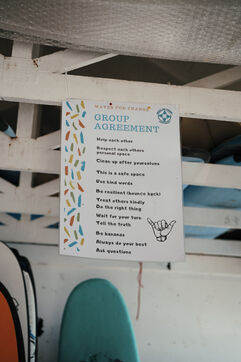 WAVES FOR CHANGE
GROUP
AGREEMENT
Help each other
Respect each others
personal space
Clean up after yourselves
This is a safe space
Use kind words
Be resilient (bounce back)
Treat others kindly
Do the right thing
Wait for your turn
Tell the truth
Be bananas
Always do your best
Ask questions